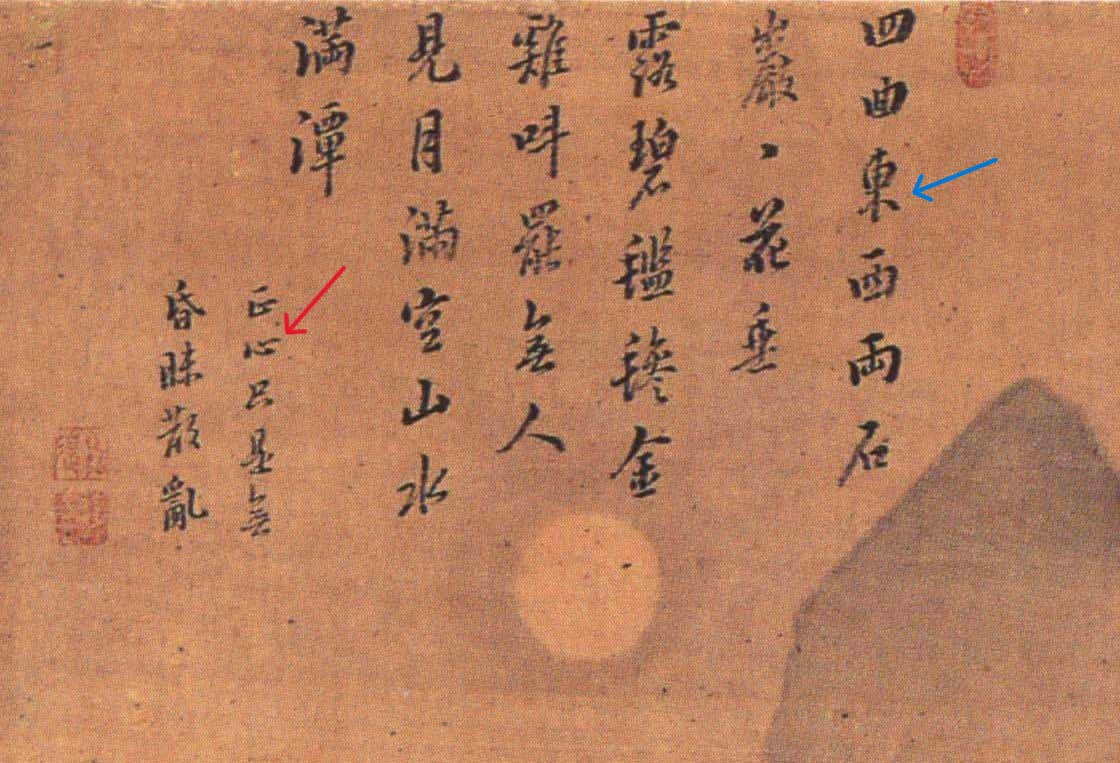 四曲東西兩石
巖〻花垂
露碧㲯毿金
雞呌罷無人
見月滿空山水
滿潭
正心只是無
昏昧散亂